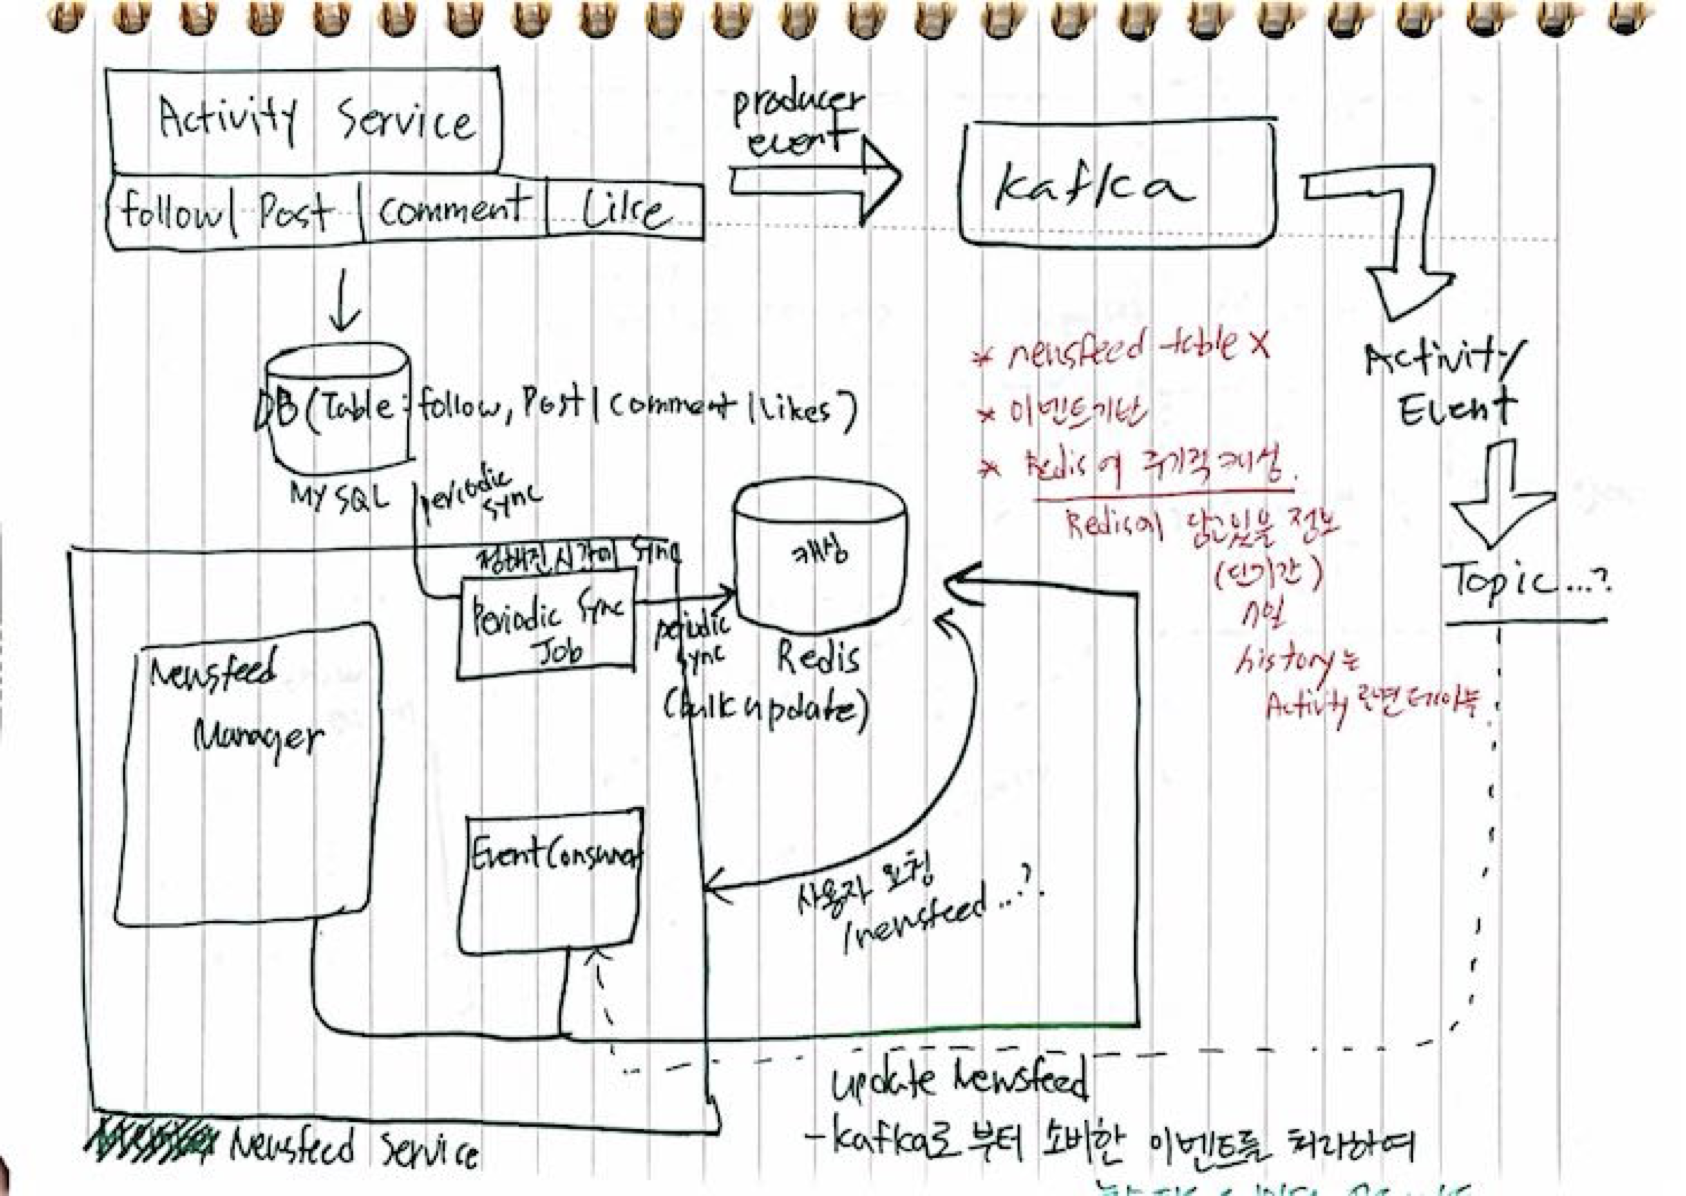 Activity Service
follow | Post | comment | Like
producer
event
kafka
Activity
Event
Topic...?
DB (Table: follow, Post | comment | likes)
MYSQL
periodic
sync
* newsfeed table X
* 이벤트기반
* Redis에 주기적 캐싱.
Redis에 담고있을 정보
(단기간)
n일
history는
Activity 관련 테이블
정해진 시간마다 Sync
Periodic Sync
Job
periodic
sync
캐싱
Redis
(bulk update)
Newsfeed
Manager
EventConsumer
사용자 요청
/newsfeed...?
update Newsfeed
-kafka로 부터 소비한 이벤트를 처리하여
Newsfeed Service